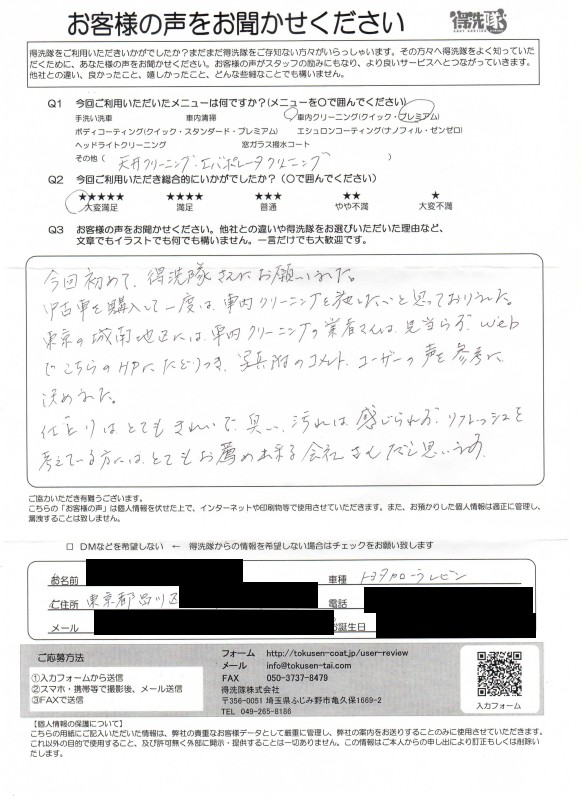 お客様の声をお聞かせください
得洗隊
得洗隊をご利用いただきいかがでしたか?まだまだ得洗隊をご存知ない方々がいらっしゃいます。その方々へ得洗隊をよく知っていた
だくために、あなた様の声をお聞かせください。お客様の声がスタッフの励みにもなり、より良いサービスへとつながっていきます。
他社との違い、良かったこと、嬉しかったこと、どんな些細なことでも構いません。
Q1 今回ご利用いただいたメニューは何ですか?(メニューを○で囲んでください)
手洗い洗車 車内清掃 車内クリーニング(クイック・プレミアム)
ボディコーティング(クイック・スタンダード・プレミアム) エシュロンコーティング(ナノフィル・ゼンゼロ)
ヘッドライトクリーニング 窓ガラス撥水コート
その他( 天井クリーニング・エバポレータクリーニング )
Q2 今回ご利用いただき総合的にいかがでしたか?(○で囲んでください)
★★★★★ ★★★★ ★★★ ★★ ★
大変満足 満足 普通 やや不満 大変不満
Q3 お客様の声をお聞かせください。他社との違いや得洗隊をお選びいただいた理由など、
文章でもイラストでも何でも構いません。一言だけでも大歓迎です。
今回初めて、得洗隊さんにお願いしました。
中古車を購入して一度は、車内クリーニングを施したいと思っておりました。
東京の城南地区には、車内クリーニングの業者さんは、見当らず、Web
でこちらのHPにたどりつき、写真附のコメント、ユーザーの声を参考に
決めました。
仕上りはとてもきれいで、臭い、汚れは感じられず、リフレッシュを
考えている方には、とてもお薦め出来る会社さんだと思います。
ご協力いただき有難うございます。
こちらの「お客様の声」は個人情報を伏せた上で、インターネットや印刷物等で使用させていただきます。また、お預かりした個人情報は適正に管理し、
漏洩することは致しません。
□ DMなどを希望しない ← 得洗隊からの情報を希望しない場合はチェックをお願い致します
お名前 車種 トヨタカローラレビン
ご住所 東京都品川区 電話
メール お誕生日
ご応募方法
①入力フォームから送信
②スマホ・携帯等で撮影後、メール送信
③FAXで送信
フォーム http://tokusen-coat.jp/user-review
メール info@tokusen-tai.com
FAX 050-3737-8479
得洗隊株式会社
〒356-0051 埼玉県ふじみ野市亀久保1669-2
TEL 049-265-8186
入力フォーム
【個人情報の保護について】
こちらの用紙にご記入いただいた情報は、弊社の貴重なお客様データとして厳重に管理し、弊社の案内をお送りすることのみに使用させていただきます。
これ以外の目的で使用すること、及び許可無く外部に開示・提供することは一切ありません。この情報はご本人からの申し出により訂正もしくは削除い
たします。